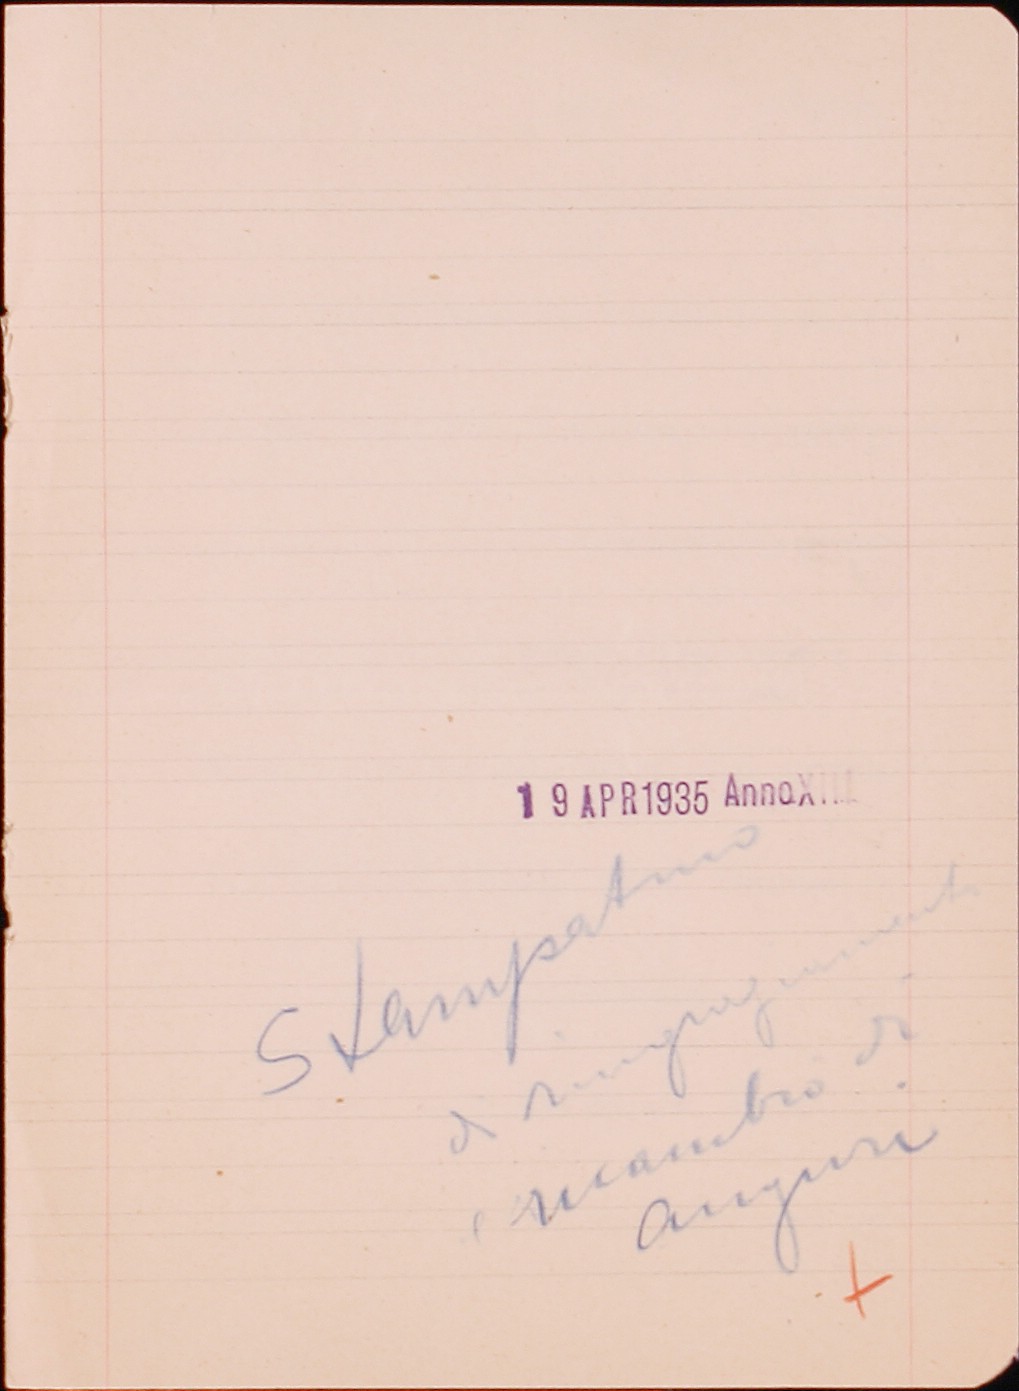 19 APR 1935 Anno XIII
Stampatino
di ringraziamento
e ricambio di
auguri